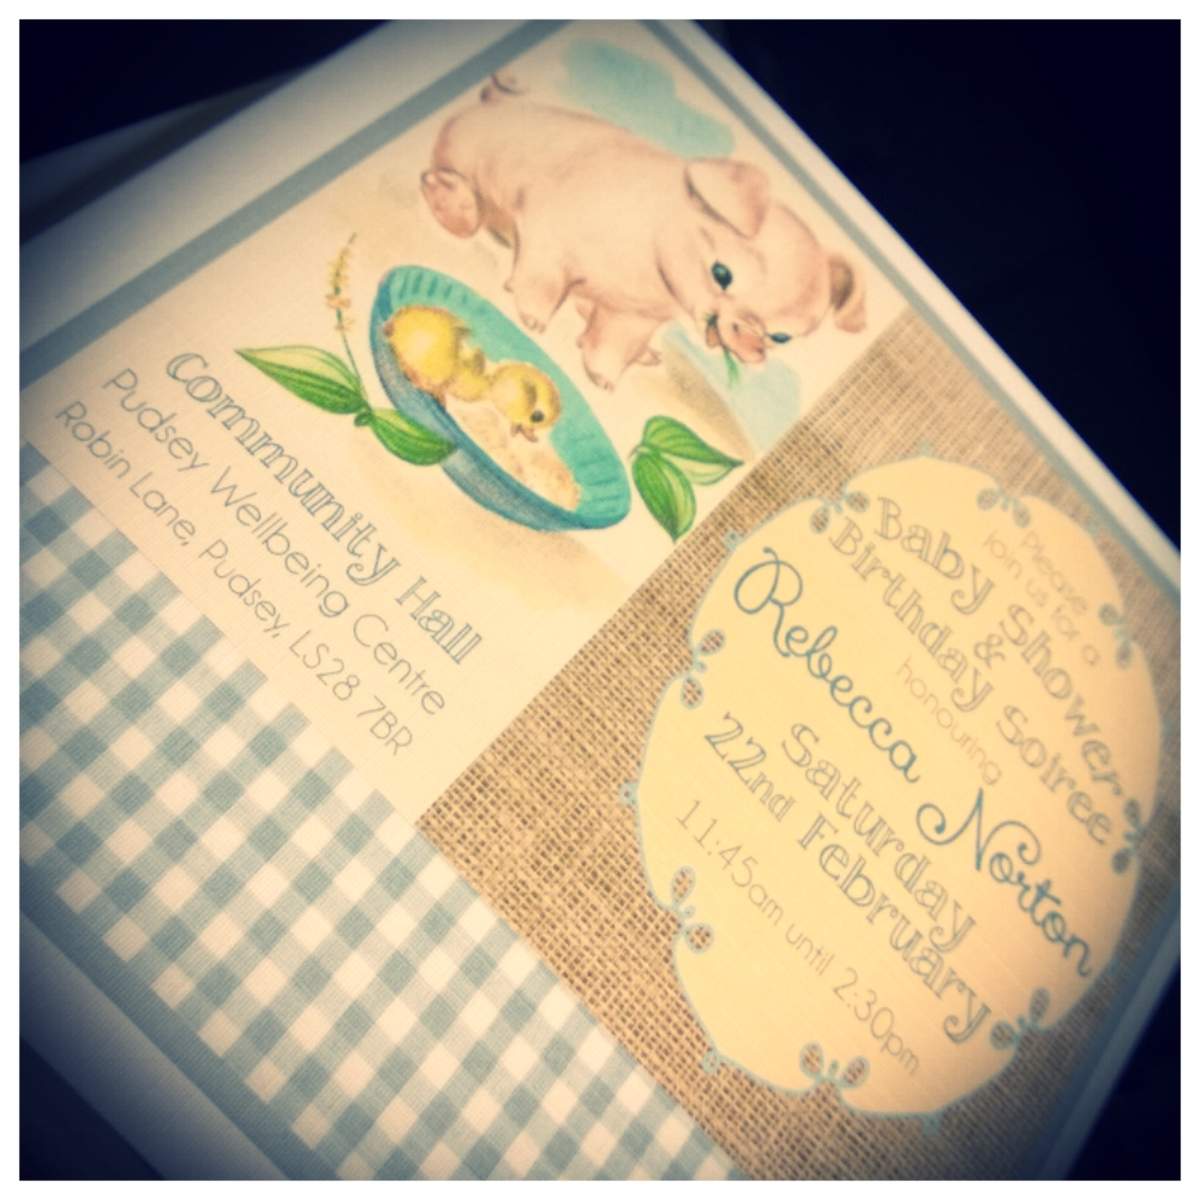 Please
join us for a
Baby Shower
&
Birthday Soiree
honouring
Rebecca Norton
Saturday
22nd February
11:45am until 2:30pm
Community Hall
Pudsey Wellbeing Centre
Robin Lane, Pudsey, LS28 7BR